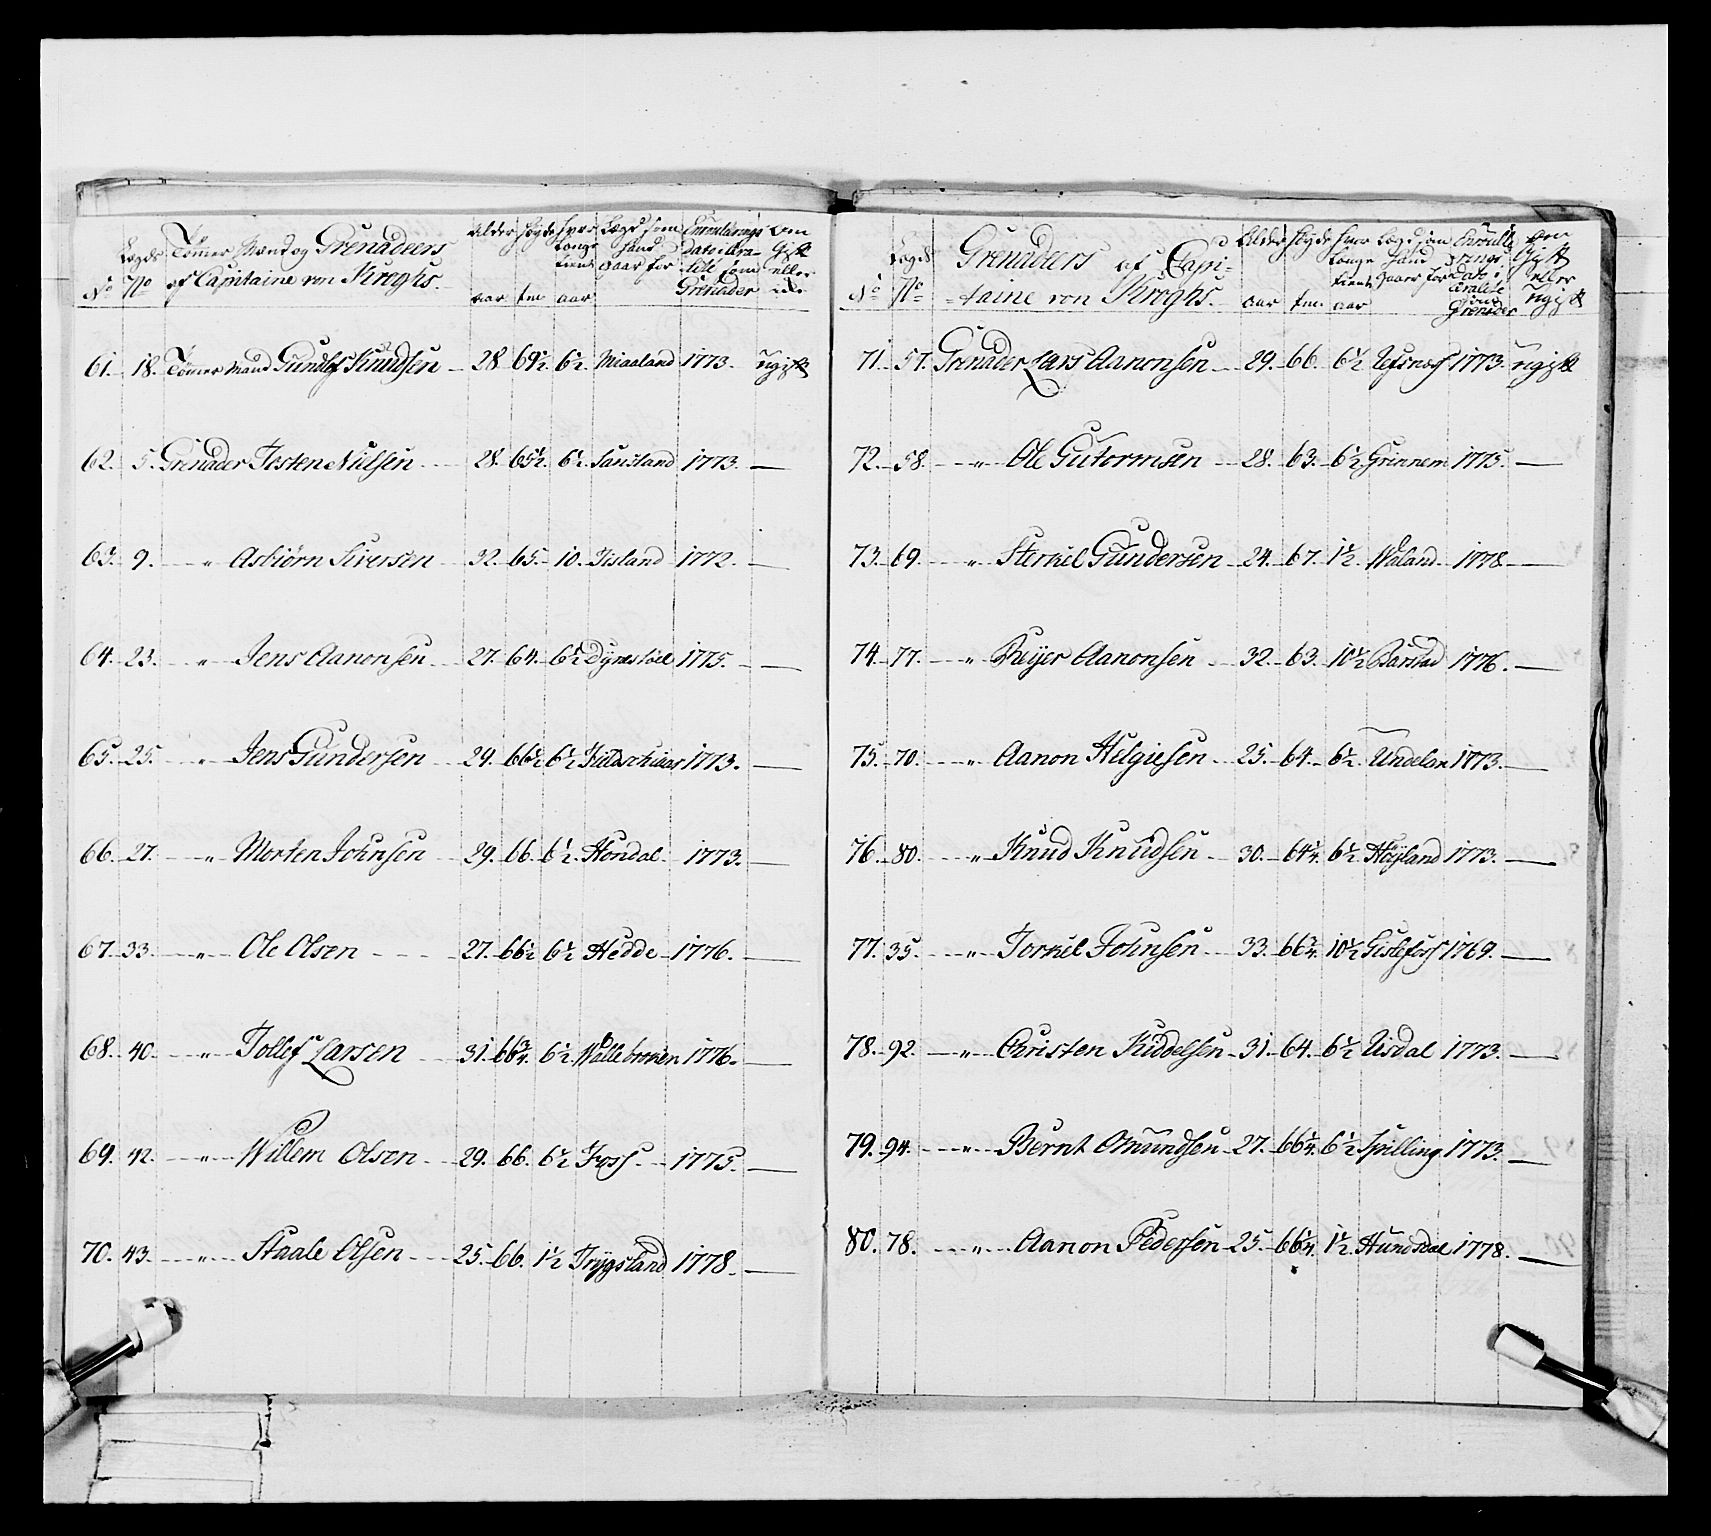 No
Lægds No
Tømer Mænd og Grenadeers
af Capitaine von Kroghs.
Alder aar
Høyde tm
hvor Længe tient aar
Lægd som hand staar for
Enroulerings Dato i qualité som Grenadeer
om Gift eller eie
61. 18. Tømermand Gundlef Knudsen 28 69½ 6½ Miaaland 1773. ugift
62. 5. Grenader Josten Nielsen 28. 65½. 6½ Sandland 1773. —
63. 9. " Asbiørn Siversen 32. 65. 10. Iisland 1772. —
64. 23. " Jens Aanonsen 27. 64. 6½ Dyrestöel 1775. —
65. 25. " Jens Gundersen 29. 66½ 6½ 1773. —
66. 27. " Morten Johnsen 29. 66. 6½. Hondal. 1773. —
67. 33. " Ole Olsen 27. 66½ 6½ Hedde 1776. —
68. 40. " Tollef Larsen 31. 66¾. 6½ Wallebroken 1776. —
69. 42. " Willem Olsen 29. 66. 6½ Foss 1775. —
70. 43. " Staale Olsen 25. 66. 1½ Trygsland 1778. —
No
Lægds No
Grenadeers af Capi-
-taine von Kroghs.
Alder aar
Høyde tm.
hvor Længe tient aar
Lægd som hand staaer for
Enroullerings Dato i qualité som Grenader
om Gift eller ugift
71. 57. Grenader Lars Aanonsen 29. 66. 6½ Refsnes 1773. ugift
72. 58. " Ole Gutormsen 28. 63. 6½ Grinnem 1775. —
73. 69. " Sterkel Gundersen 24. 67. 1½. Waland 1778. —
74. 77. " Reyer Aanonsen 32. 63. 10½ Barstad 1776. —
75. 70. " Aanon Helgiesen 25. 64. 6½. Undelan 1773. —
76. 80. " Knud Knudsen 30. 64¼. 6½ Høyland 1773. —
77. 35. " Torkel Johnsen 33. 66¾. 10½ Gislefoss 1769. —
78. 92. " Christen Kiddelsen 31. 64. 6½ Uisdal 1773. —
79. 94. " Bernt Omundsen 27. 66¼. 6½ Spilling 1773. —
80. 78. " Aanon Pedersen 25. 66¼. 1½ Hundsdal 1778. —